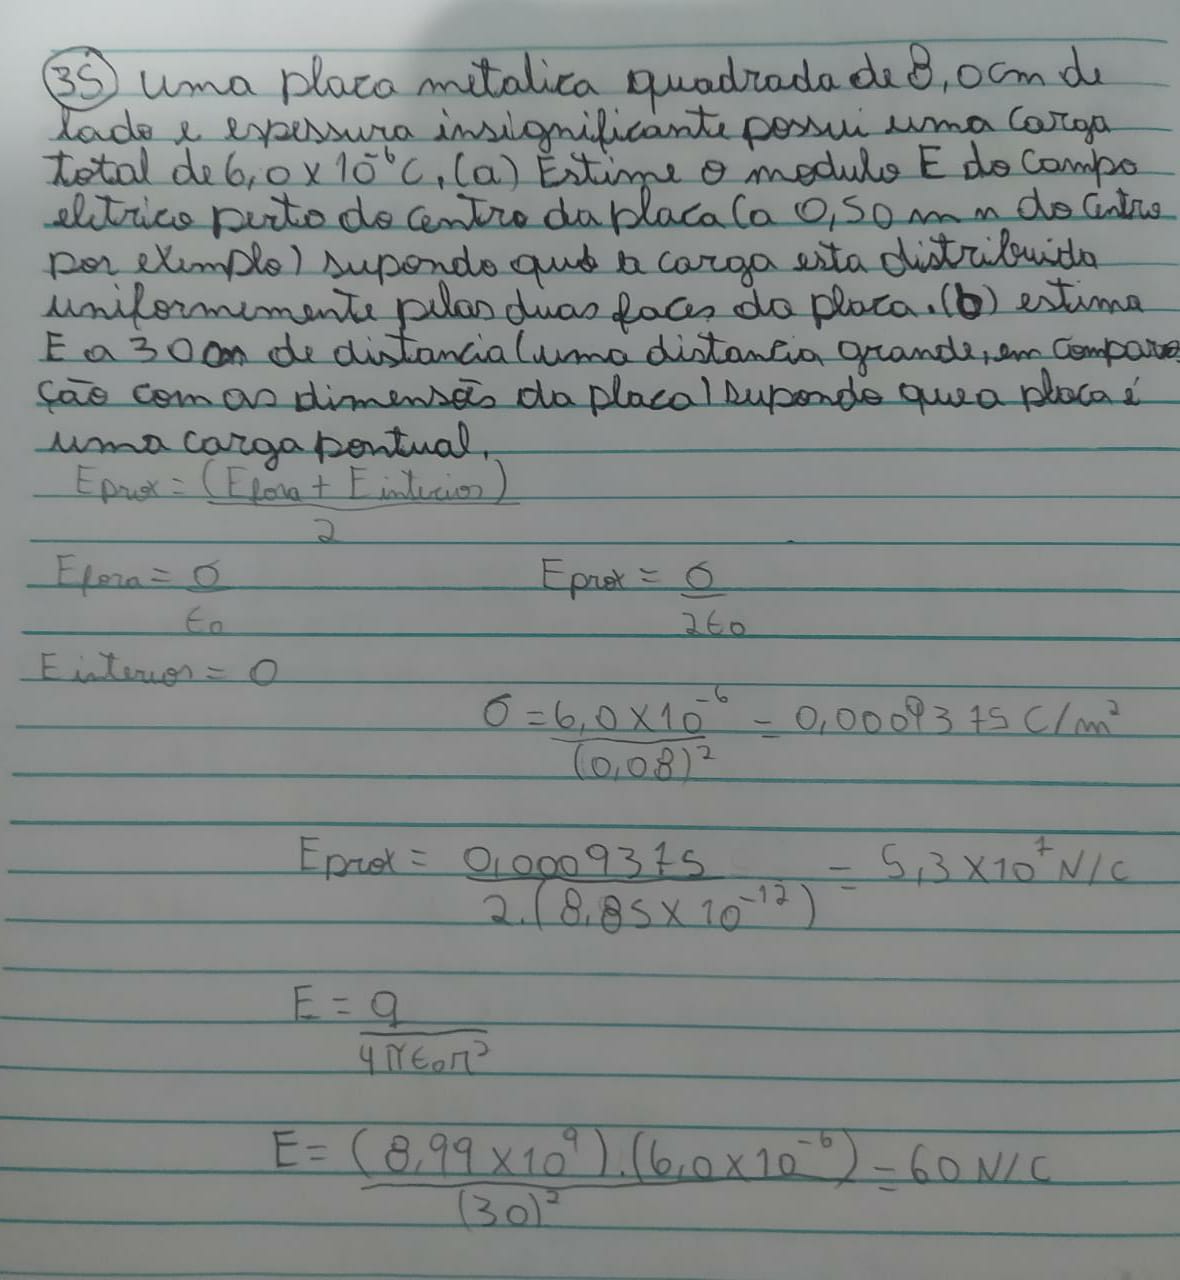 35 uma placa metalica quadrada de 8,0cm de
lado e espessura insignificante possui uma carga
total de 6,0 x 10⁻⁶C, (a) Estime o modulo E do campo
eletrico perto do centro da placa (a 0,50 mm do centro
por exemplo) supondo que a carga esta distribuida
uniformemente pelas duas faces da placa. (b) estima
E a 30 cm de distancia (uma distancia grande, em compara
ção com as dimensões da placa) supondo que a placa é
uma carga pontual.
Eprox = (Efora + Einterior)
2
Efora = σ Eprox = σ
ϵ₀ 2ϵ₀
Einterior = 0
σ = 6,0 x 10⁻⁶ = 0,0009375 C/m²
(0,08)²
Eprox = 0,0009375 = 5,3 x 10⁷ N/C
2.(8,85 x 10⁻¹²)
E = q
4πϵ₀r²
E = (8,99 x 10⁹).(6,0 x 10⁻⁶) = 60 N/C
(30)²